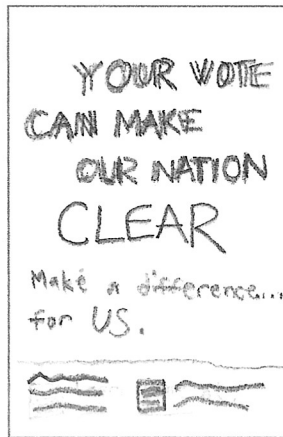 YOUR VOTE
CAN MAKE
OUR NATION
CLEAR
Make a difference...
for US.